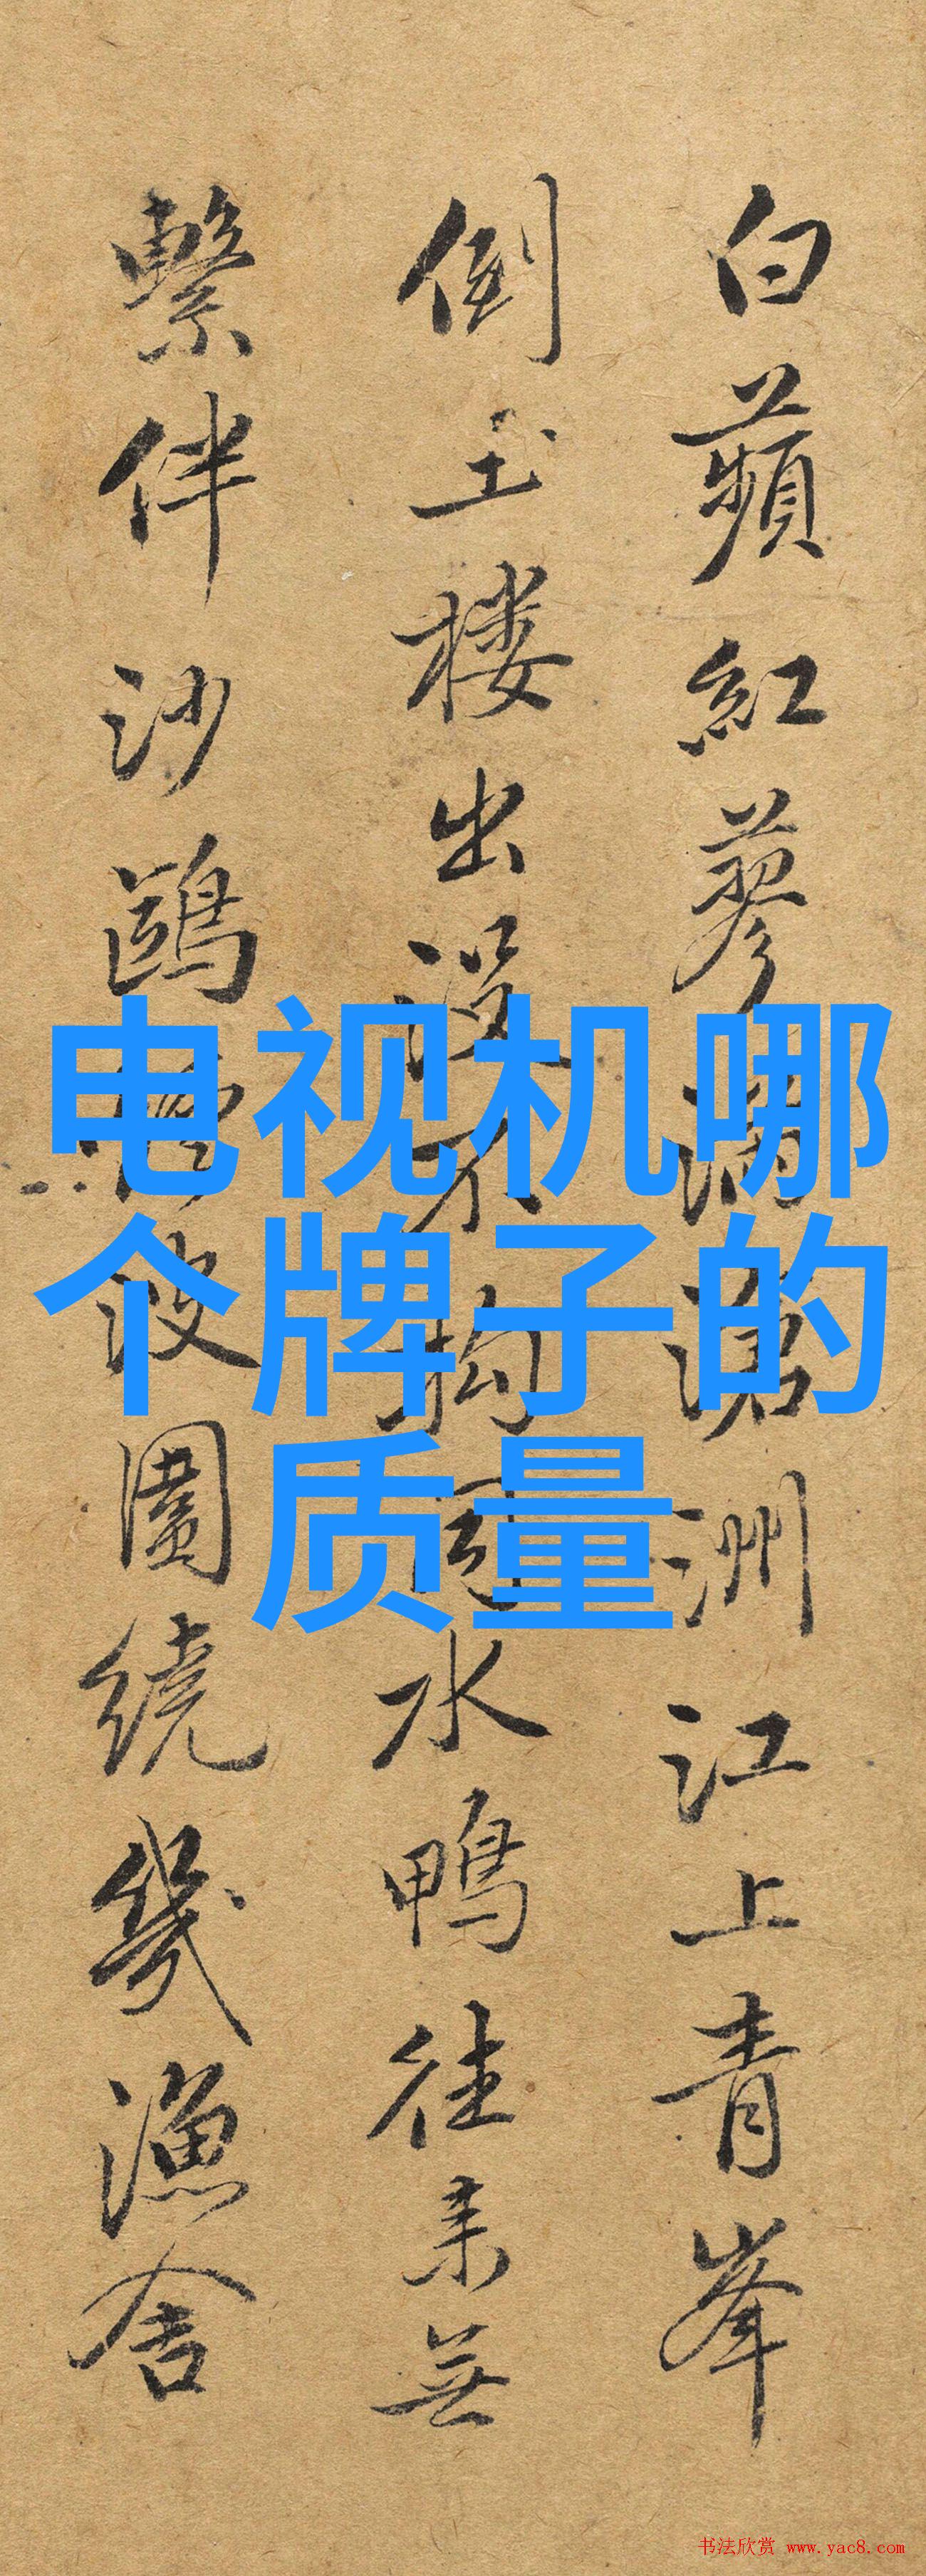 白蘋紅蓼滿滄洲江上青峯
倒玉楼出没不拘同水鴨往来無
繫伴沙鷗浮波圍繞幾漁舍
电视机哪
个牌子的
质量
书法欣赏 www.yac8.com